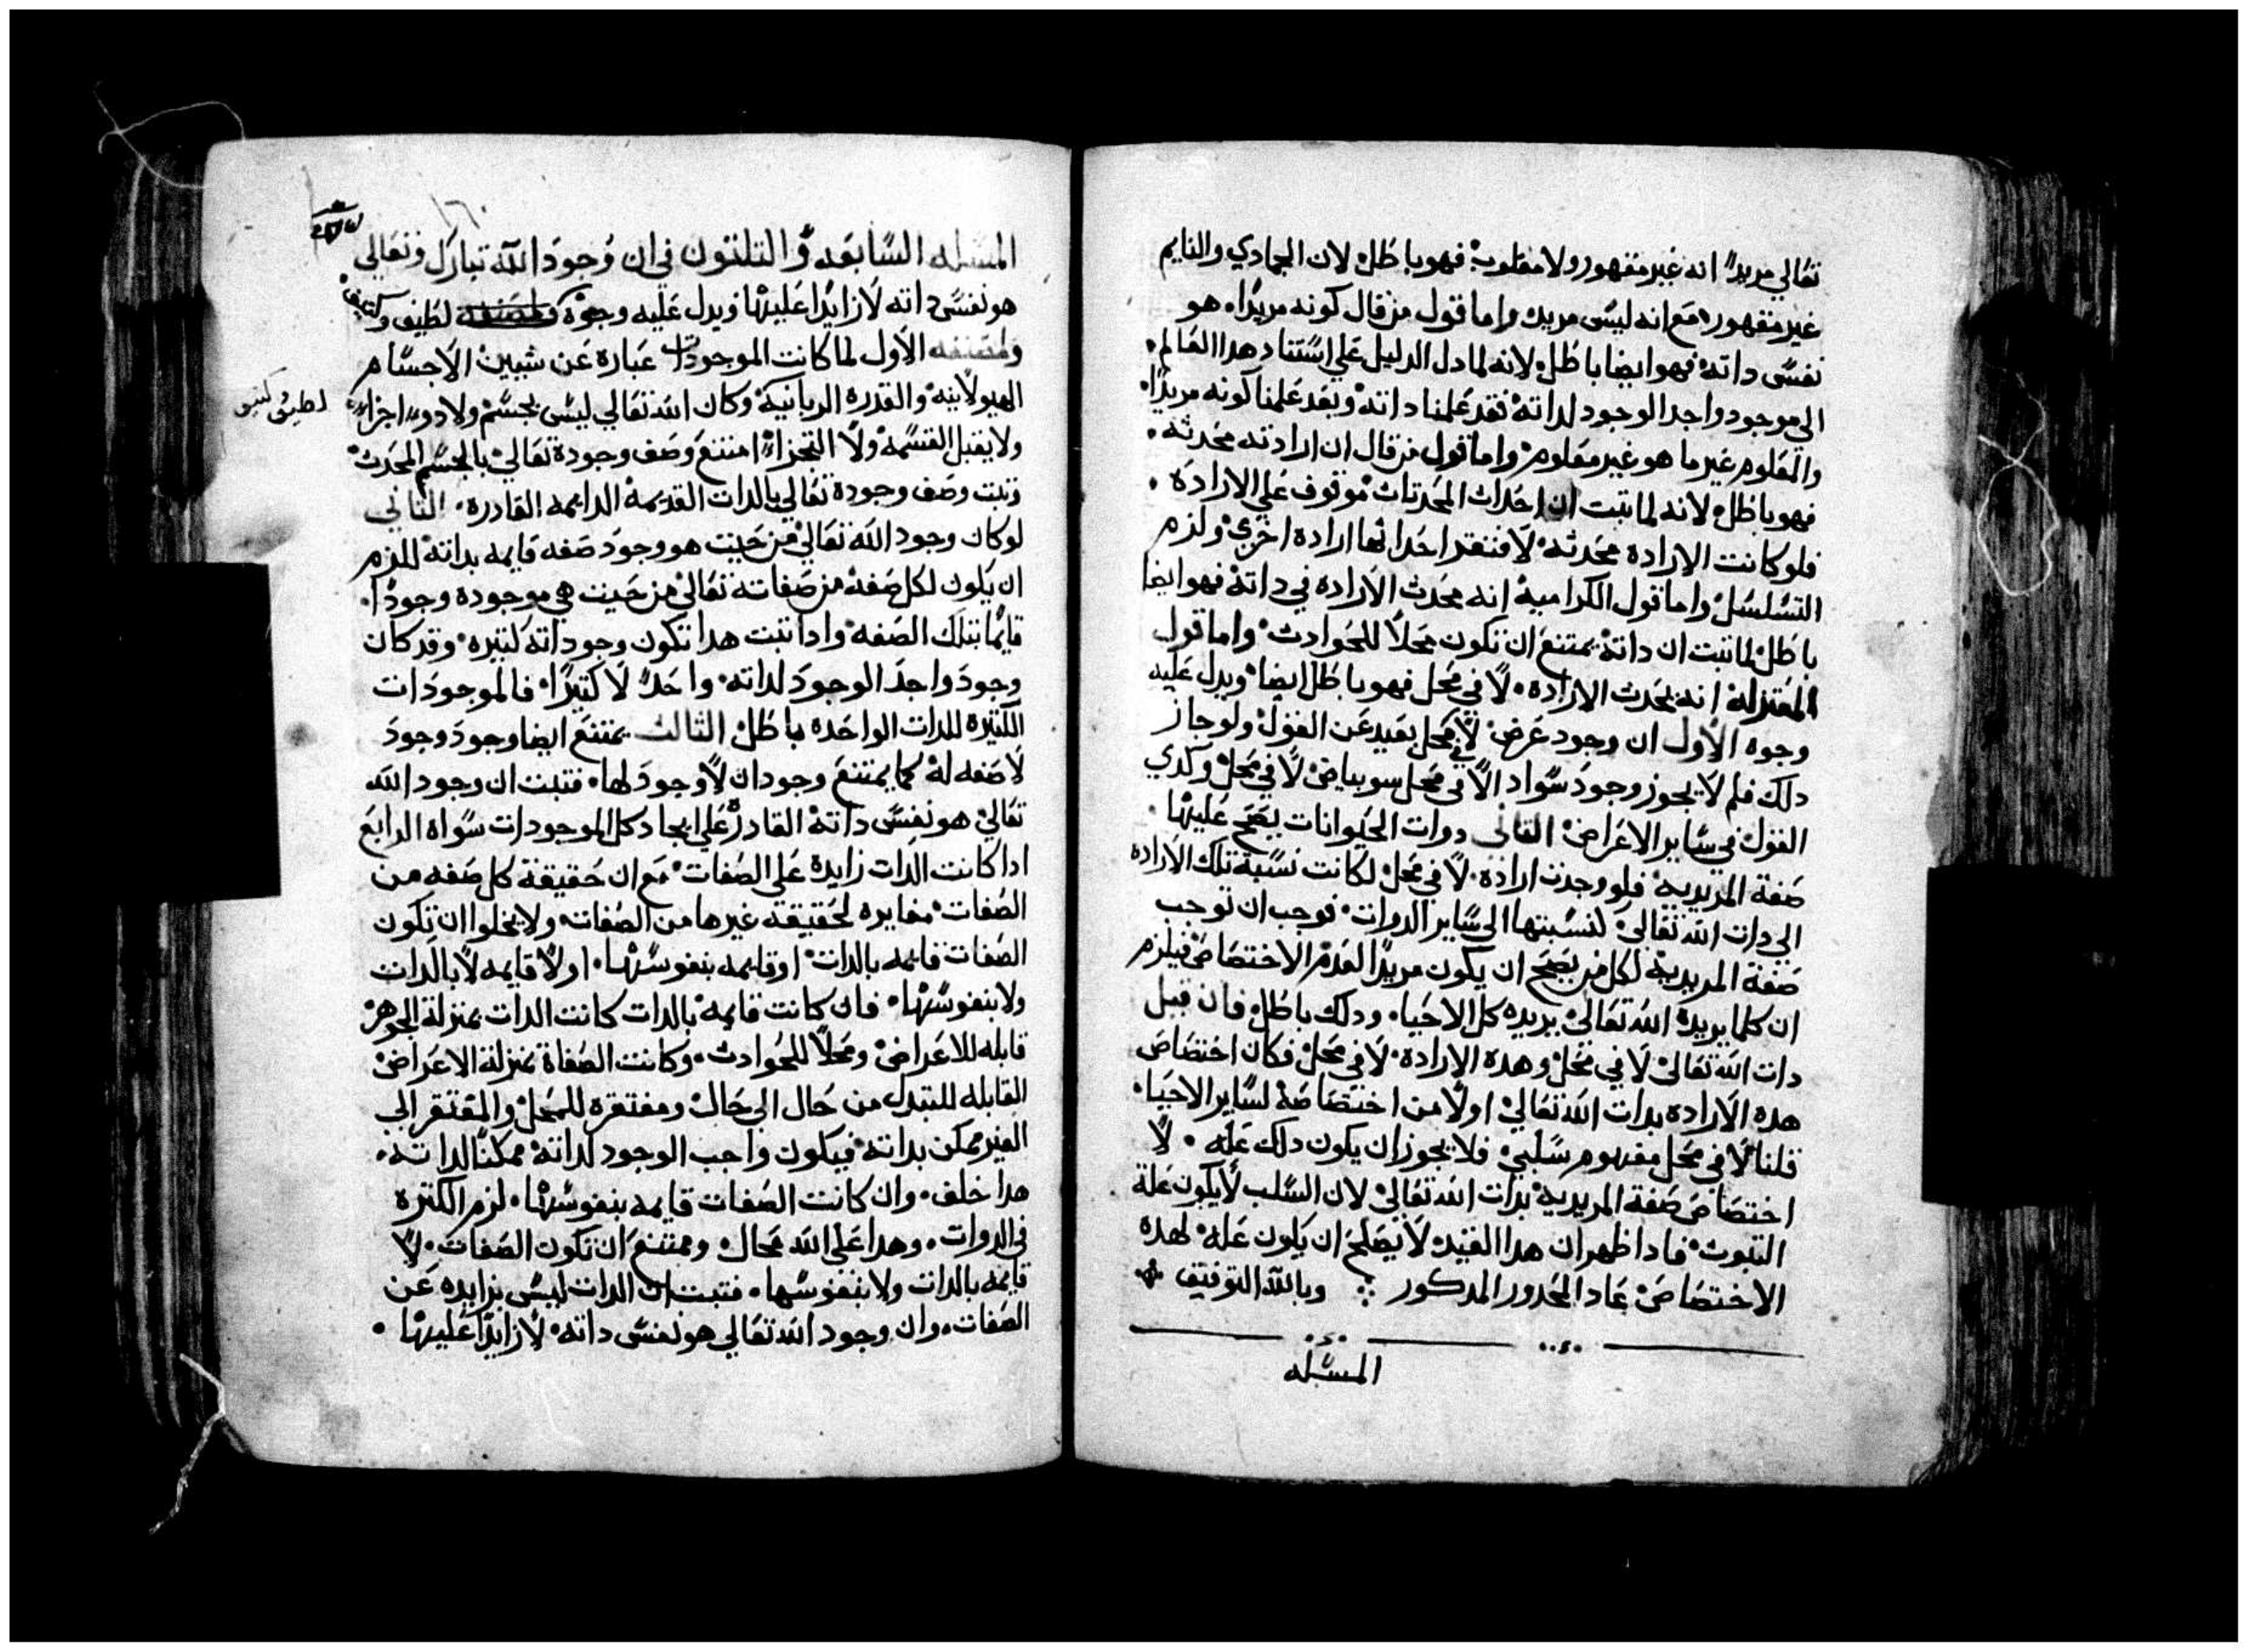 تعالي مريدا انه غير مقهور ولا مغلوب فهو باطل لان الجمادي والنايم
غير مقهور مع انه ليس مريد واما قول من قال كونه مريدا هو
نفس داته فهو ايضا باطل لانه لما دل الدليل علي استناد هدا العالم
الي موجود واجد الوجود لداته فقد علمنا داته وبعد علمنا كونه مريدا
والمعلوم غير ما هو غير معلوم واما قول من قال ان ارادته محدثه
فهو باطل لانه لما تبت ان احداث المحدتات موقوف علي الاراده
فلو كانت الاراده محدثه لافتقر احداثها اراده اخري ولزم
التسلسل واما قول الكراميه انه محدث الاراده في داته فهو ايضا
باطل لما تبت ان داته يمتنع ان تكون محلا للحوادث واما قول
المعتزله انه يحدث الاراده لا في محل فهو باطل ايضا ويدل عليه
وجوه الاول ان وجود عرض لا في محل بعيد عن العقول ولو جاز
دلك فلم لا يجوز وجود سواد الا في محل سو بياض لا في محل وكدي
القول في ساير الاعراض التاني دوات الحيوانات يصح عليها
صفة المريديه فلو وجدت اراده لا في محل لكانت نسبة تلك الاراده
الي دات الله تعالي كنسبتها الي ساير الدوات فوجب ان توجب
صفة المريديه لكل من يصح ان يكون مريدا لعدم الاختصاص فيلزم
ان كلما يريده الله تعالي يريده كل الاحيا ودلك باطل فان قيل
دات الله تعالي لا في محل وهده الاراده لا في محل فكان اختصاص
هده الاراده بدات الله تعالي اولا من اختصاصه لساير الاحيا
قلنا لا في محل مفهوم سلبي فلا يجوز ان يكون دلك عله لا
اختصاص صفة المريديه بدات الله تعالي لان السلب لا يكون علة
التبوت فادا ظهر ان هدا القيد لا يصلح ان يكون عله لهده
الاختصاص عاد المحدور المدكور وبالله التوفيق
المسله
المسله السابعه والتلتون في ان وجود الله تبارك وتعالي
هو نفس داته لا زايدا عليها ويدل عليه وجوه لطيف وكتيف
الاول لما كانت الموجودات عبارة عن شيين الاجسام
لطيف وكتيف
الهيولانيه والقدره الربانيه وكان الله تعالي ليس بجسم ولا دو اجزا
ولا يقبل القسمه ولا التجزا امتنع وصف وجوده تعالي بالجسم المحدث
وتبت وصف وجوده تعالي بالدات القديمه الدايمه القادره التاني
لو كان وجود الله تعالي من حيت هو وجود صفه قايمه بداته للزم
ان يكون لكل صفه من صفاته تعالي من حيت هي موجوده وجودا
قايما بتلك الصفه وادا تبت هدا تكون وجود اته كتيره وقد كان
وجود واجد الوجود لداته واحد لا كتيرا فالموجودات
الكتيره للدات الواحده باطل التالت يمتنع ايضا وجود وجود
لا صفه له كما يمتنع وجودان لا وجود لها فتبت ان وجود الله
تعالي هو نفس داته القادره علي ايجاد كل الموجودات سواه الرابع
ادا كانت الدات زايده علي الصفات مع ان حقيقة كل صفه من
الصفات مغايره لحقيقة غيرها من الصفات ولا يخلوا ان تكون
الصفات قايمه بالدات او قايمه بنفوسها او لا قايمه لا بالدات
ولا بنفوسها فان كانت قايمه بالدات كانت الدات بمنزلة الجوهر
قابله للاعراض ومحلا للحوادث وكانت الصفاة بمنزلة الاعراض
القابله للتبدل من حال الي حال ومفتقره للمحل والمفتقر الي
الغير ممكن بداته فيكون واجب الوجود لداته ممكنا لداته
هدا خلف وان كانت الصفات قايمه بنفوسها لزم الكتره
في الدوات وهدا علي الله محال وممتنع ان تكون الصفات لا
قايمه بالدات ولا بنفوسها فتبت ان الدات ليس بزايده عن
الصفات وان وجود الله تعالي هو نفس داته لا زايدا عليها